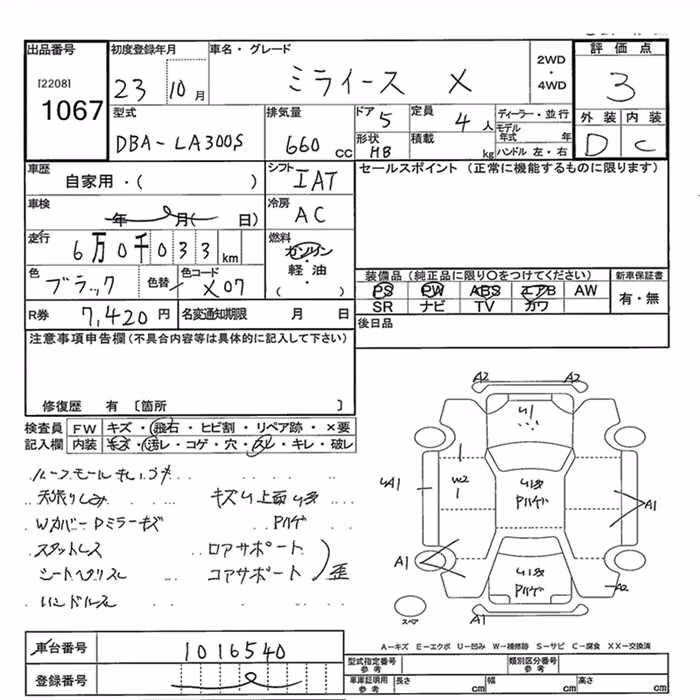 出品番号 初度登録年月 車名・グレード 2WD・4WD 評価点
[2208]
1067
23 10月 ミライース X 3
型式 排気量 ドア 5 定員 4人 ディーラー・並行 外装 内装
DBA-LA300S 660cc 形状 HB 積載 kg モデル年式 年 D C
ハンドル 左・右
車歴 シフト IAT セールスポイント (正常に機能するものに限ります)
自家用・( )
車検 年 月( 日) 冷房 AC
走行 6万0千033km 燃料 ガソリン・軽油 ( )
色 ブラック 色替 色コード X07 装備品 (純正品に限り○をつけてください) 新車保証書
PS PW ABS エアB AW 有・無
SR ナビ TV カワ
R券 7,420円 名変通知期限 月 日 後日品
注意事項申告欄(不具合内容等は具体的に記入して下さい)
修復歴 有 〔箇所 〕
検査員 FW キズ・飛石・ヒビ割・リペア跡・×要
記入欄 内装 キズ・汚レ・コゲ・穴・スレ・キレ・破レ
天張りしみ キズU上面U多
Wカバー Dミラーキズ Pハゲ
スタットレス ロアサポート
コアサポート 歪
A2 A2
U1
A1 W2 U多 A1
Pハゲ
A1 U多 A2
Pハゲ
スペア A1
A-キズ E-エクボ U-凹み W-補修跡 S-サビ C-腐食 XX-交換済
車台番号 1016540 型式指定番号 参考 類別区分番号 参考
登録番号 車庫証明用 参考 長さ cm 幅 cm 高さ cm